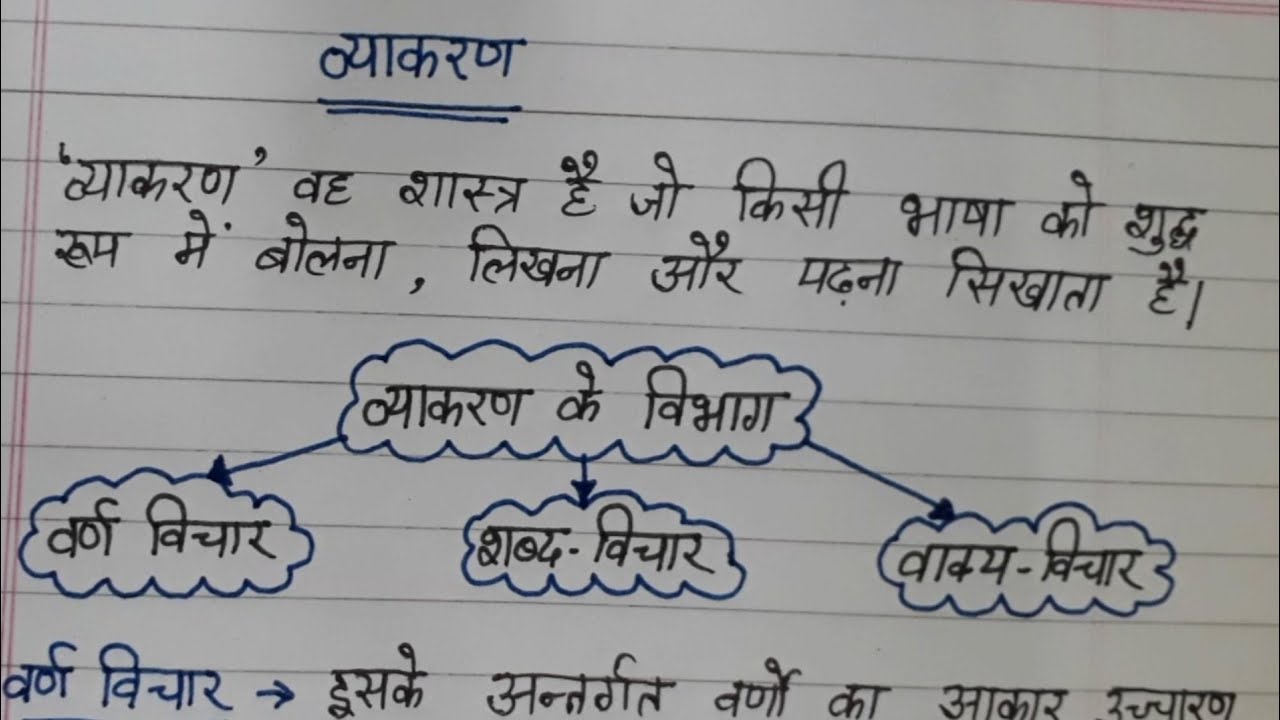 व्याकरण
'व्याकरण' वह शास्त्र है जो किसी भाषा को शुद्ध
रूप में बोलना, लिखना और पढ़ना सिखाता है।
व्याकरण के विभाग
वर्ण विचार
शब्द-विचार
वाक्य-विचार
वर्ण विचार → इसके अन्तर्गत वर्णों का आकार उच्चारण